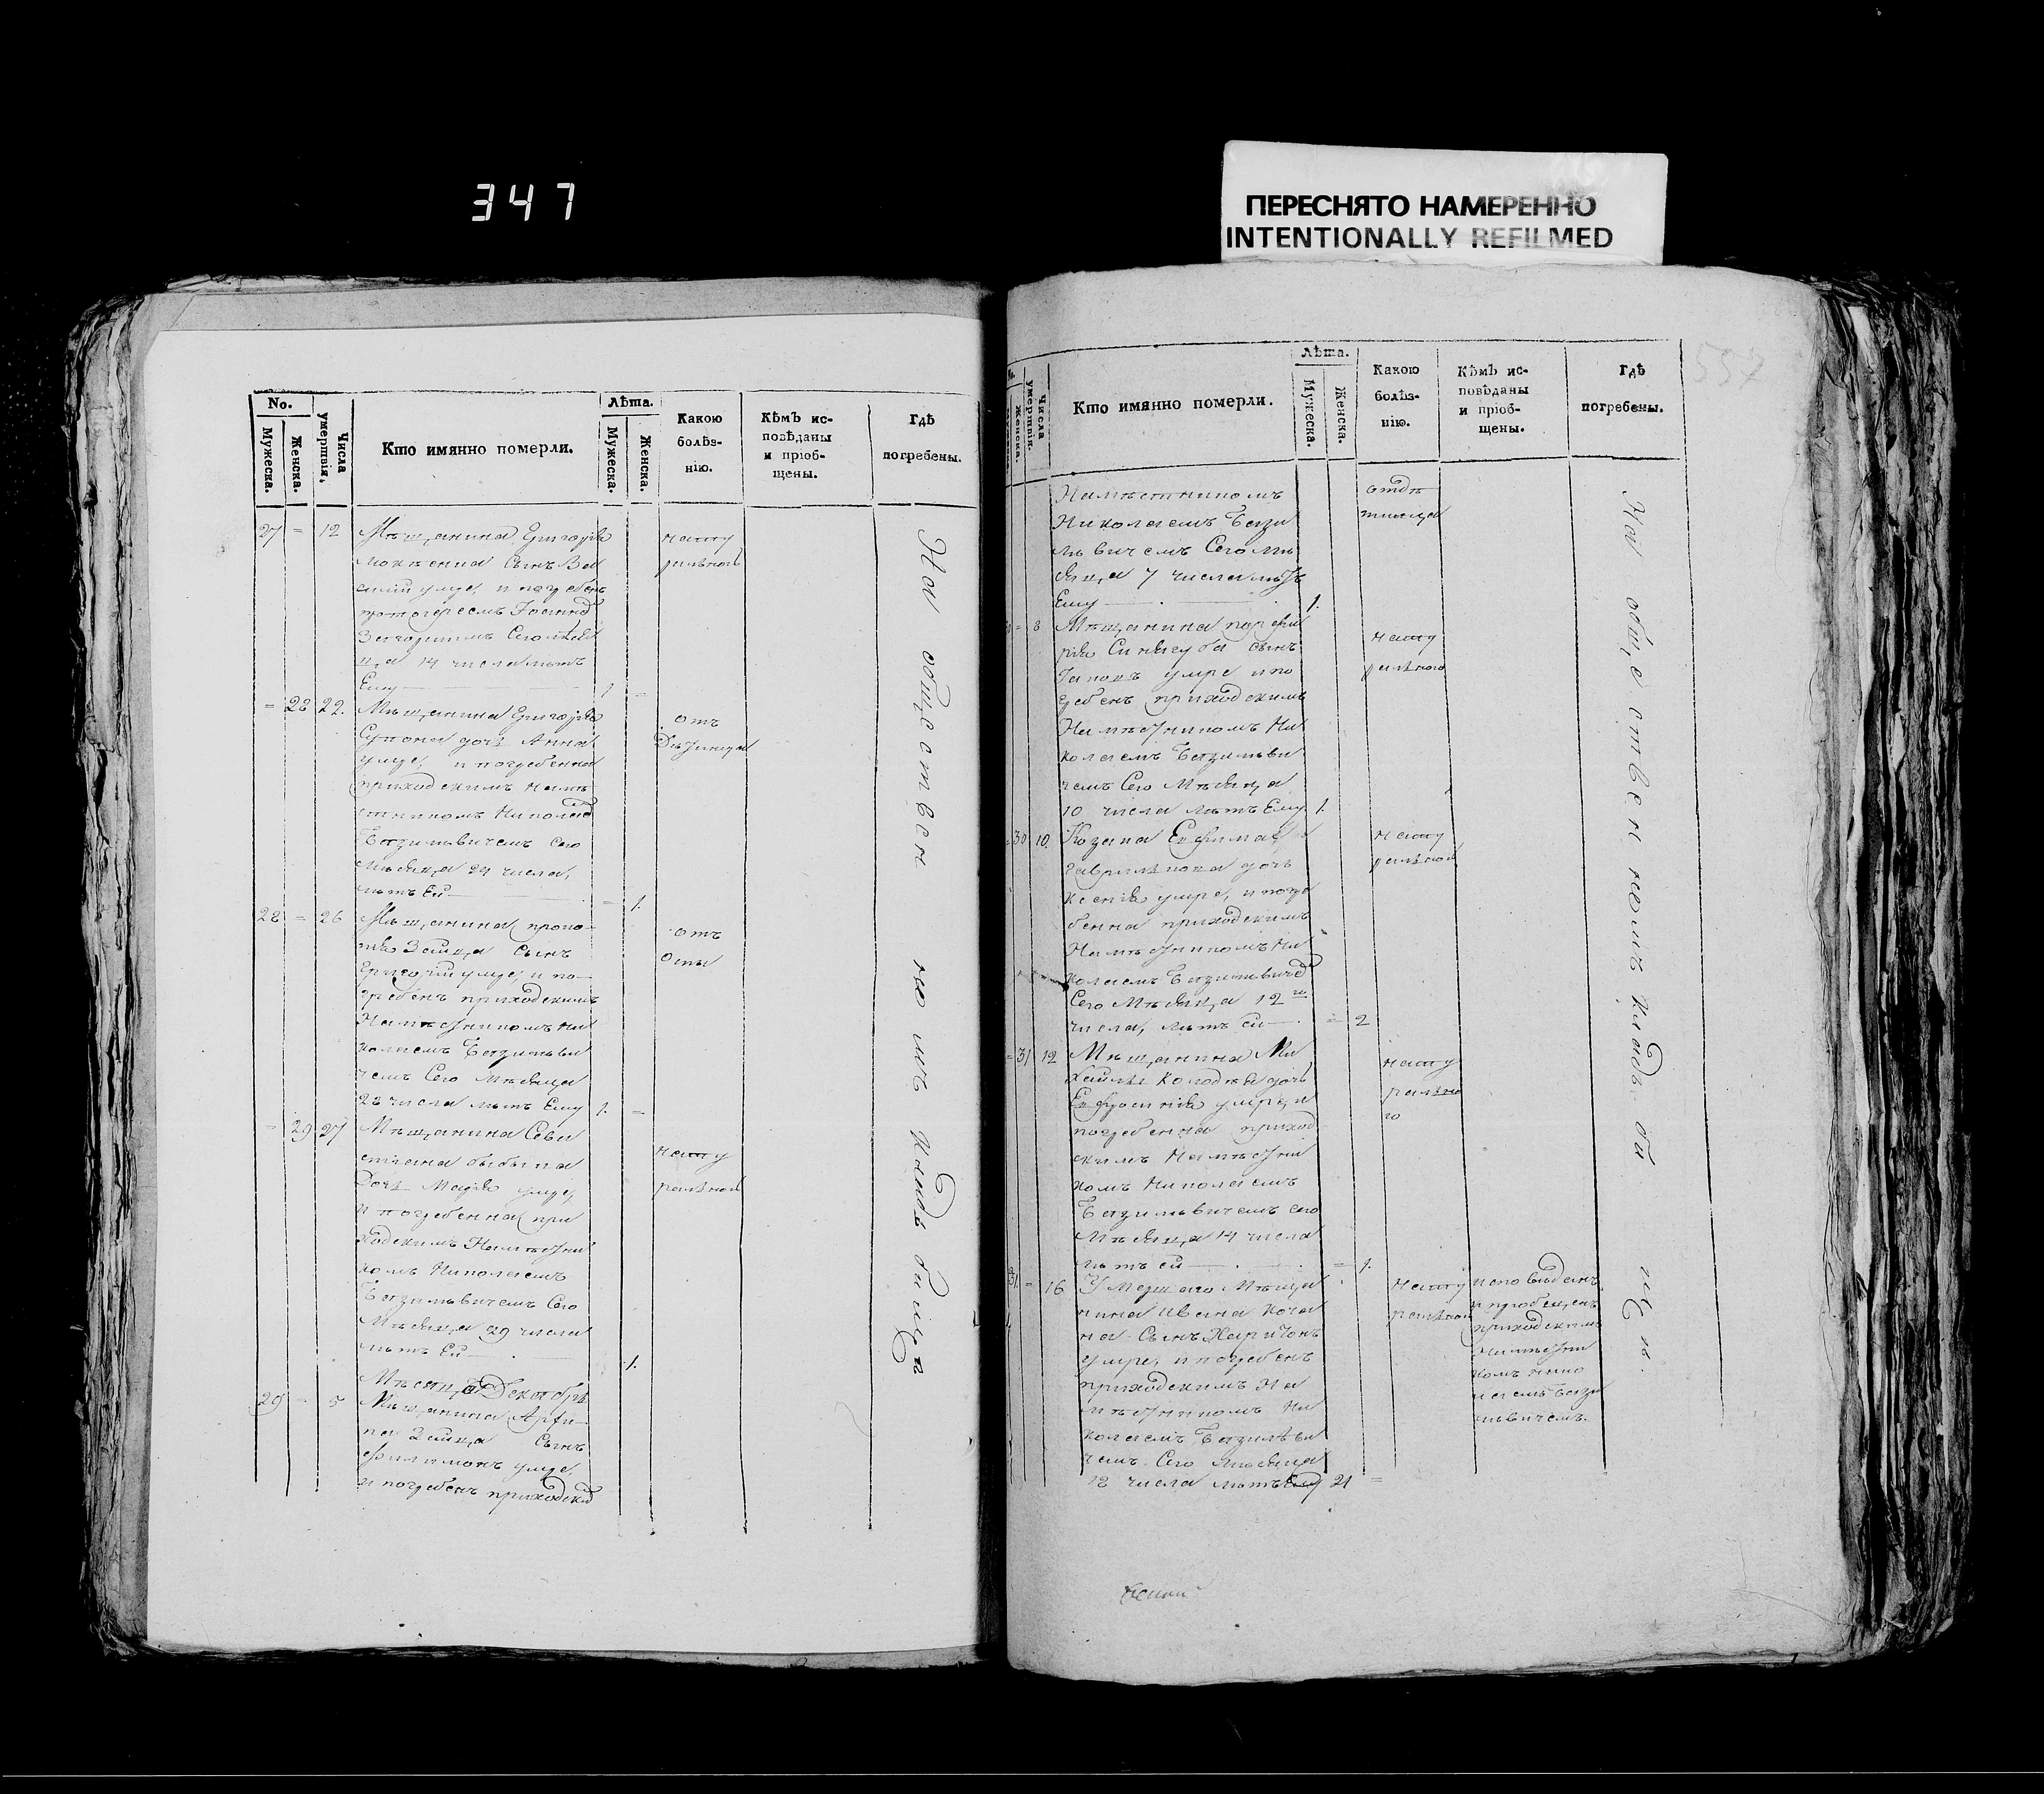 347
ПЕРЕСНЯТО НАМЕРЕННО
INTENTIONALLY REFILMED
No.
Мужеска.
Женска.
Числа умертвія.
Кто имянно померли.
Лѣта.
Мужеска.
Женска.
Какою болѣз-
нію.
Кѣмъ ис-
повѣданы
и пріоб-
щены.
Гдѣ
погребены.
27 = 12 Мѣщанина Григорія
сынъ Ва
силій умре, и погребенъ
протоіереемъ Іоанно
Сего мѣся
ца 14 числа лѣтъ
Ему 1 =
нату
ральною
= 28 22. Мѣщанина Григорія
дочь Анна
умре, и погребенна
приходскимъ намѣ
стникомъ Николае
Базилевичемъ Сего
Мѣсяца 24 числа,
лѣтъ Ей = 1.
отъ
28 = 26 Мѣщанина Проко
пія Зайца сынъ
Григорій умре, и по
гребенъ приходскимъ
Намѣстникомъ Ни
колаемъ Базилеви
чемъ Сего Мѣсяца
28 числа лѣтъ Ему 1. =
отъ
оспы
= 29 27 Мѣщанина Сева
стіана
Дочь Марія умре,
и погребенна при
ходскимъ Намѣстни
комъ Николаемъ
Базилевичемъ Сего
Мѣсяца 29 числа
лѣтъ Ей 1.
нату
ральною
Мѣсяцъ Декабрь
29 = 5 Мѣщанина
Зайца Сынъ
Филимонъ умре,
и погребенъ приходски
На общественномъ кладбищѣ
Числа умертвія.
Женска.
Кто имянно померли.
Лѣта.
Мужеска.
Женска.
Какою
болѣз-
нію.
Кѣмъ ис-
повѣданы
и пріоб-
щены.
Гдѣ
погребены.
Намѣстникомъ
Николаемъ Бази
левичемъ Сего мѣ
сяца 7 числа лѣтъ
Ему 1.
= 8 Мѣщанина Порфи
рія сынъ
умре и по
гребенъ приходскимъ
Намѣстникомъ Ни
колаемъ Базилеви
чемъ Сего Мѣсяца
10 числа лѣтъ Ему 1.
нату
ральною
= 30 10. Козака Евфима
дочь
Ксенія умре, и погре
бенна приходскимъ
Намѣстникомъ Ни
колаемъ Базилевиче
Сего Мѣсяца 12го
числа, лѣтъ Ей = 2
нату
ральною
= 31 12 Мѣщанина Ми
хайла дочь
Евфросинія умре, и
погребенна приход
скимъ Намѣстни
комъ Николаемъ
Базилевичемъ Сего
Мѣсяца 14 числа
лѣтъ ей = 1.
нату
рально
ю
31 = 16 Умершаго Мѣща
нина Ивана
Сынъ Харитонъ
умре, и погребенъ
приходскимъ На
мѣстникомъ Ни
колаемъ Базилеви
чемъ Сего Мѣсяца
18 числа лѣтъ Ему 21 =
нату
ральною
исповѣданъ
и пріобщенъ
приходскимъ
Намѣстни
комъ Нико
лаемъ Бази
левичемъ.
На общественномъ кладбищѣ.